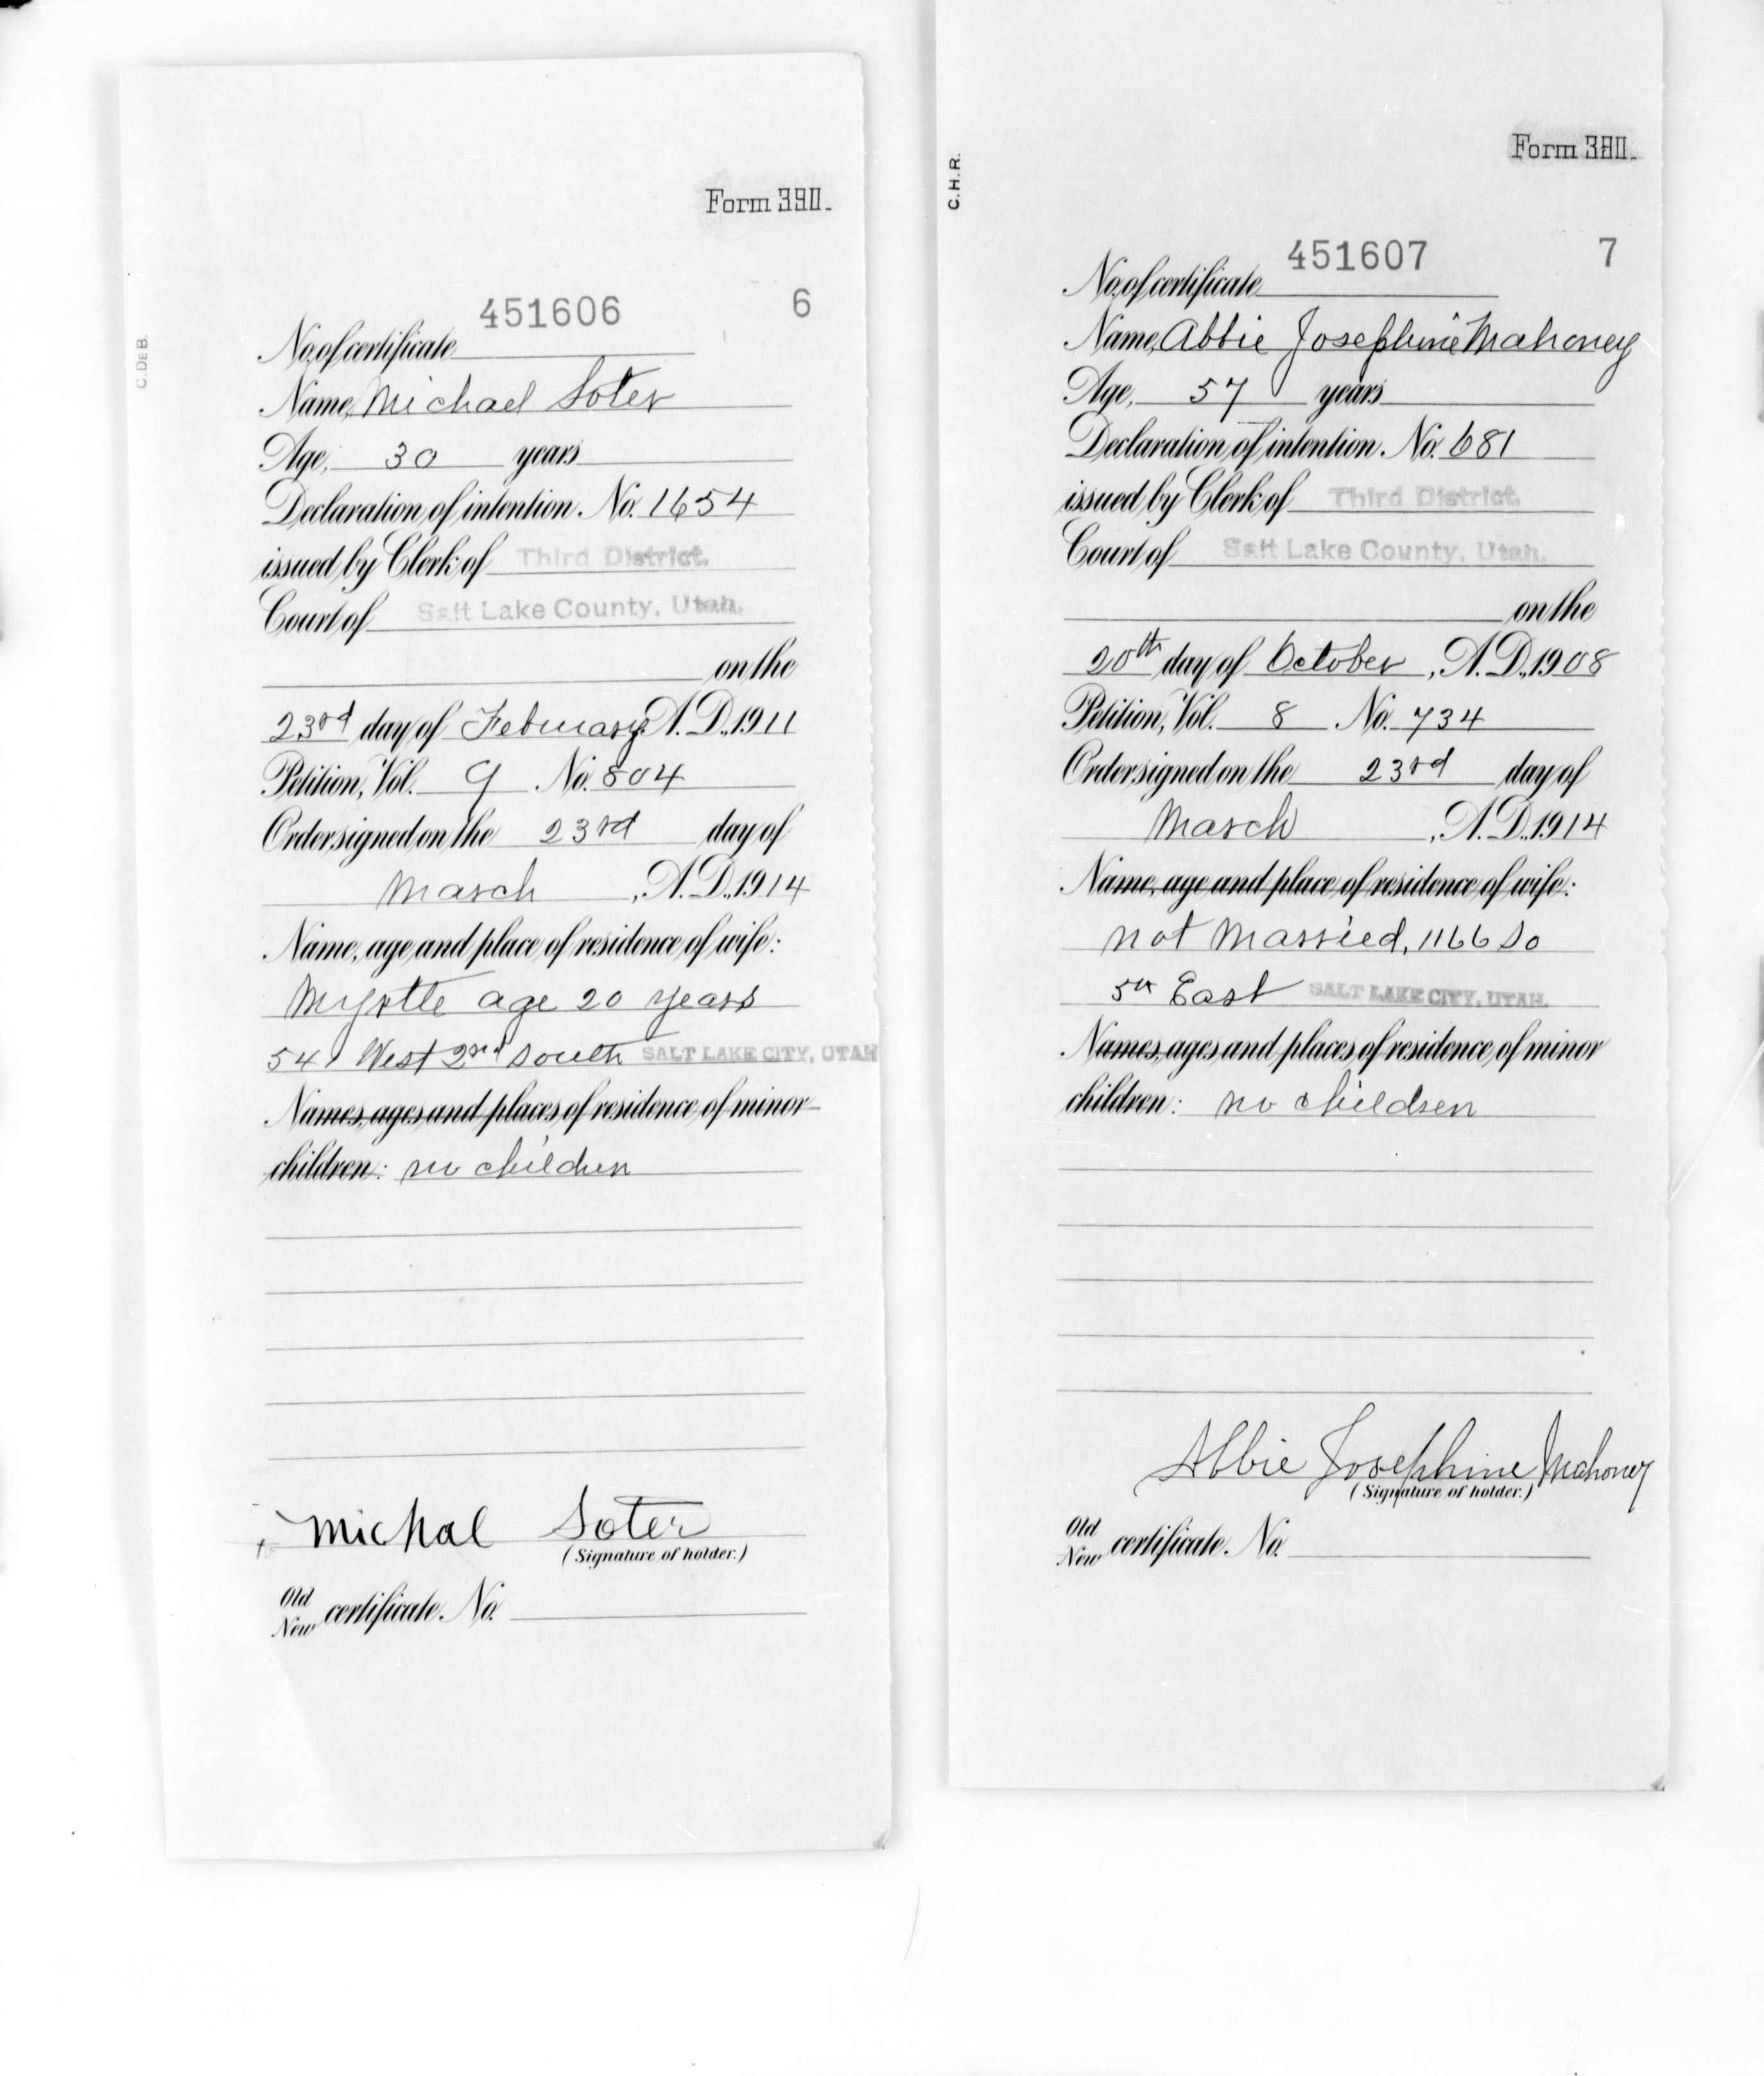 C. DE B.
Form 390.
451606 6
No. of certificate
Name, Michael Soter
Age, 30 years
Declaration of intention. No. 1654
issued by Clerk of Third District.
Court of Salt Lake County, Utah.
on the
23rd day of February, A. D., 1911
Petition, Vol. 9 No. 804
Order signed on the 23rd day of
March, A. D., 1914
Name, age and place of residence of wife:
Myrtle age 20 years
541 West 2nd South SALT LAKE CITY, UTAH
Names, ages and places of residence of minor
children: no children
Michal Soter
(Signature of holder.)
Old
New certificate. No.
C.H.R.
Form 390.
451607 7
No. of certificate
Name, Abbie Josephine Mahoney
Age, 57 years
Declaration of intention. No. 681
issued by Clerk of Third District.
Court of Salt Lake County, Utah.
on the
20th day of October, A. D., 1908
Petition, Vol. 8 No. 734
Order signed on the 23rd day of
March, A. D., 1914
Name, age and place of residence of wife:
not Married, 1166 So
5th East SALT LAKE CITY, UTAH.
Names, ages and places of residence of minor
children: no children
Abbie Josephine Mahoney
(Signature of holder.)
Old
New certificate. No.